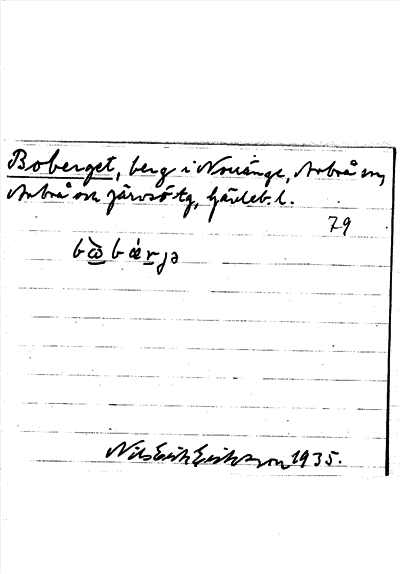 Boberget, berg i Norränge, Arbrå sn,
Arbrå och Järvsö tg, Gävleb. l.
79
bὼbǽrja
Nils Erik Eriksson 1935.